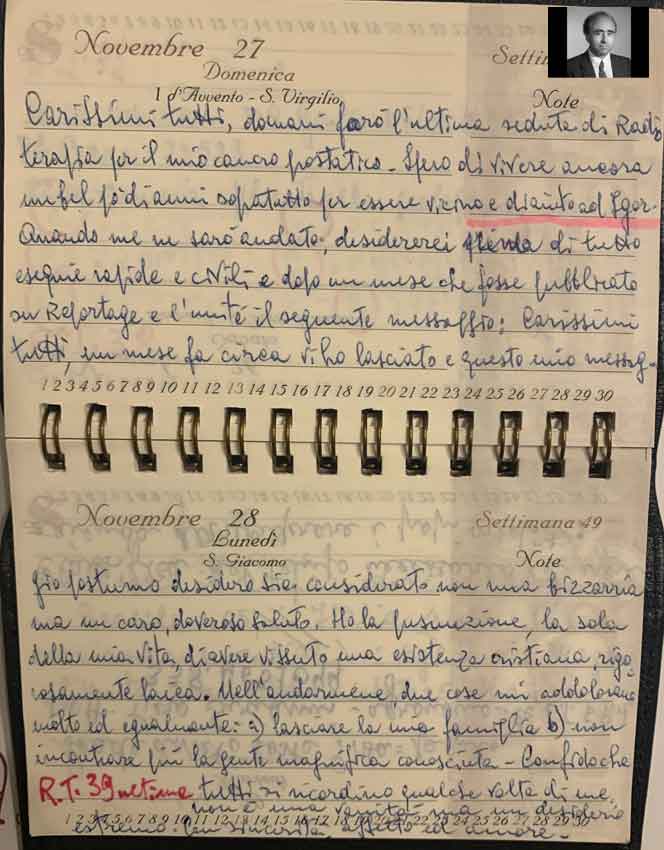 Novembre 27
Domenica
I d'Avvento - S. Virgilio
Note
Carissimi tutti, domani farò l'ultima seduta di Radio
terapia per il mio cancro prostatico - Spero di vivere ancora
un bel pò di anni sopratutto per essere vicino e di aiuto ad Igor.
Quando me ne sarò andato, desidererei di tutto
esequie rapide e civili e dopo un mese che fosse pubblicato
su Reportage e l'unità il seguente messaggio: Carissimi
tutti, un mese fa circa vi ho lasciato e questo mio messag-
1 2 3 4 5 6 7 8 9 10 11 12 13 14 15 16 17 18 19 20 21 22 23 24 25 26 27 28 29 30
Novembre 28
Settimana 49
Lunedì
S. Giacomo
Note
gio postumo desidero sia considerato non una bizzarria
ma un caro, doveroso saluto. Ho la presunzione, la sola
della mia vita, di avere vissuto una esistenza cristiana, rigo
rosamente laica. Nell'andarmene, due cose mi addolorano
molto ed egualmente: a) lasciare la mia famiglia b) non
incontrare più la gente magnifica conosciuta - Confido che
R.T. 39 ultima tutti si ricordino qualche volta di me,
non è una vanità ma un desiderio
estremo. Con sincerità affetto ed amore -